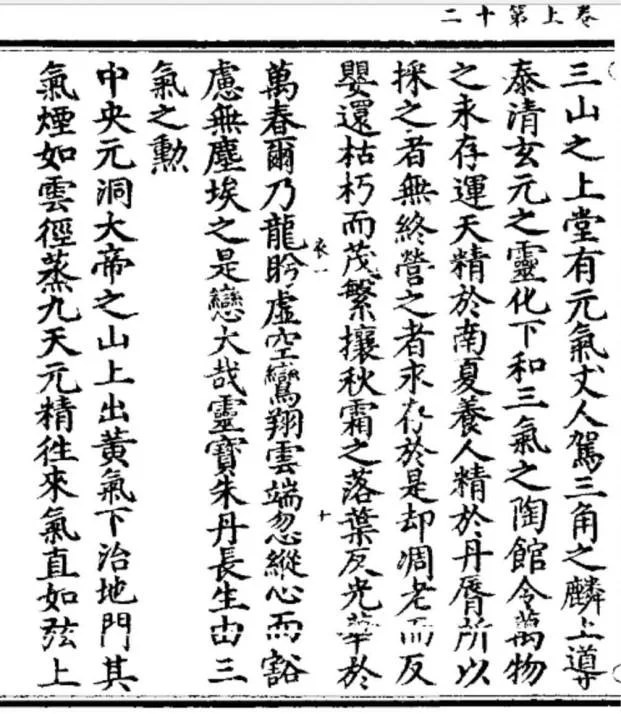 卷上第十二
三山之上堂有元氣丈人駕三角之麟上導
泰清玄元之靈化下和三氣之陶館令萬物
之永存運天精於南夏養人精於丹脣所以
採之者無終營之者永存於是却凋老而反
嬰還枯朽而茂繁攘秋霜之落葉反光華於
衣一 十
萬春爾乃龍盻虛空鸞翔雲端忽縱心而豁
慮無塵埃之是戀大哉靈寶朱丹長生由三
氣之勳
中央元洞大帝之山上出黃氣下治地門其
氣煙如雲徑蒸九天元精徃來氣直如弦上